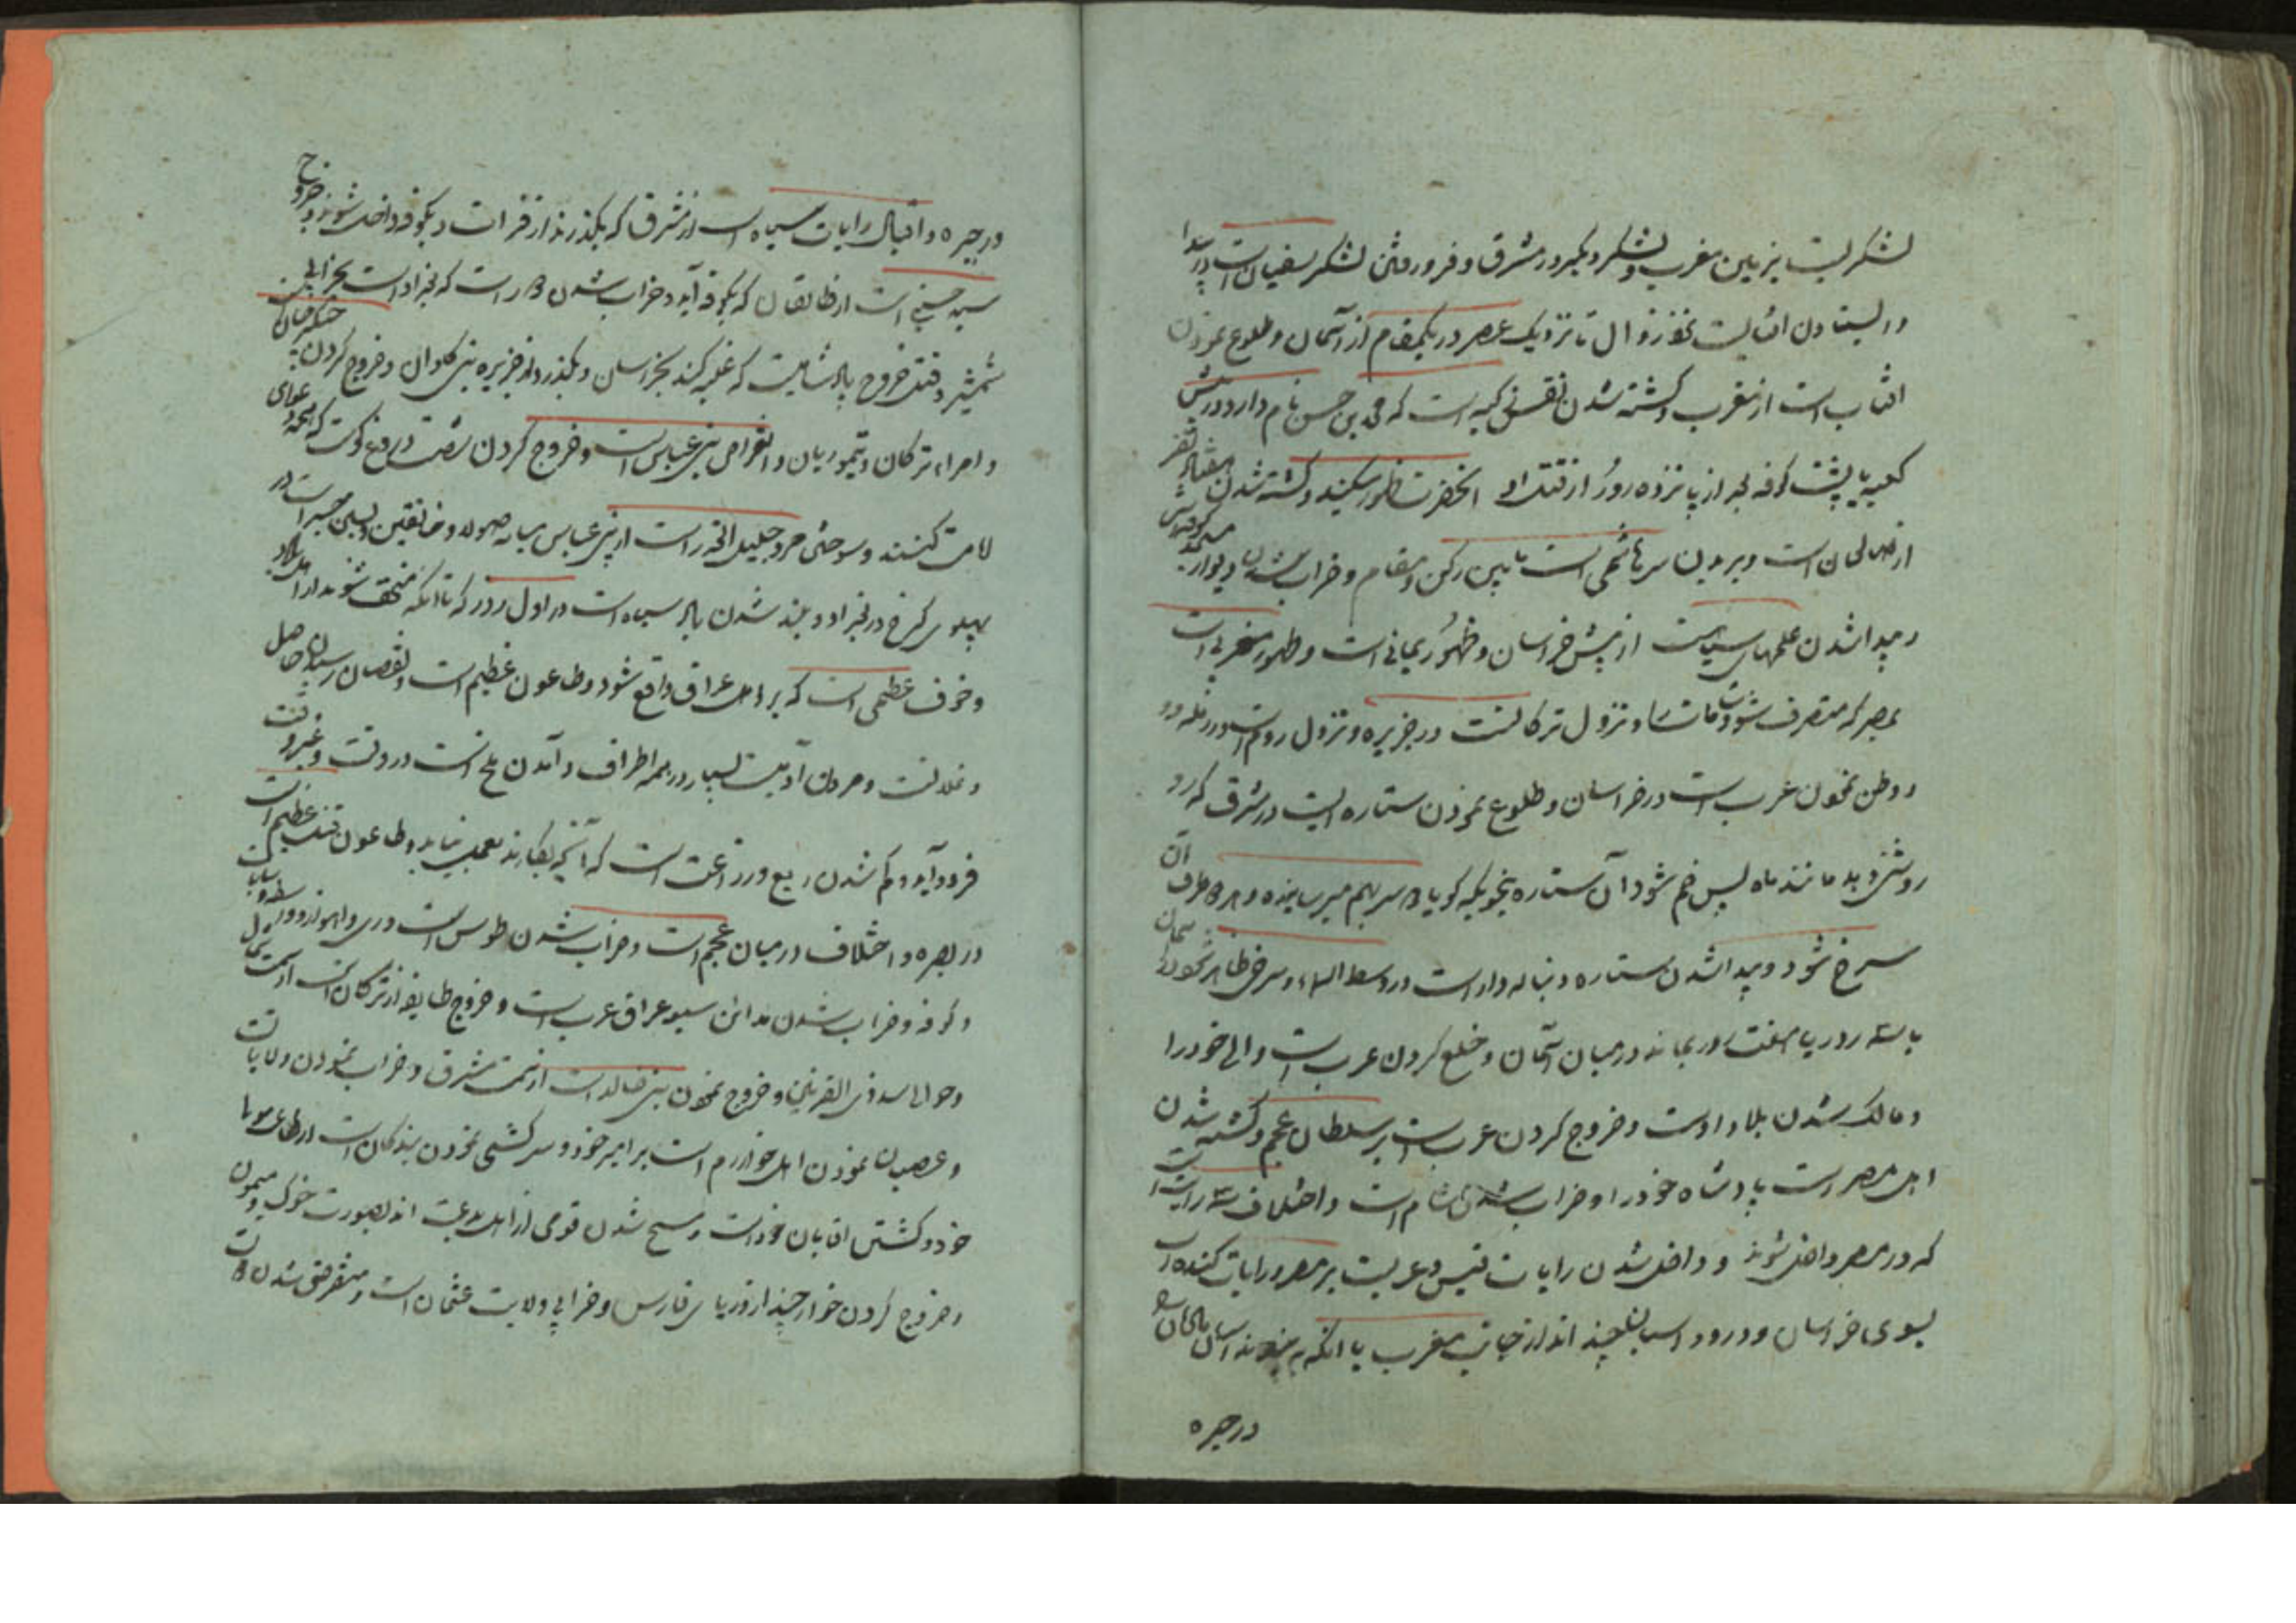 لشکریست بزمین مغرب و لشکر دیگر در مشرق و فرو رفتن لشکر سفیان است در بیدا
و ایستادن افتابست نزد زوال تا نزدیک عصر در یکمقام از آسمان و طلوع نمودن
افتاب است از مغرب و کشته شدن نفس زکیه است که محمد بن حسن نام دارد در پیش
کعبه یا پشت کوفه بعد از پانزده روز از قتل او انحضرت ظهور میکنند و کشته شدن هفتاد نفر
از صالحان است و بریدن سر هاشمی است مابین رکن و مقام و خراب شدن دیوار مسجد کوفه است
و پیدا شدن علمهای سیاهست از پیش خراسان و ظهور یمانی است و ظهور مغربی است
بمصر که متصرف شود شامات را و نزول ترکانست در جزیره و نزول روم است در رمله و
وطن نمودن عرب است در خراسان و طلوع نمودن ستاره ایست در مشرق که
روشنی دهد مانند ماه پس خم شود آن ستاره بنحویکه گویا دو سر بهم میرسانند و هر دو طرف آن
سرخ شود و پیدا شدن ستاره دنباله دار است در وسط السماء و سرخی ظاهر شدن آسمان
یا سه روز یا هفت روز بماند در میان آسمان و خلع کردن عرب است والی خود را
و مالک شدن بلاد اوست و خروج کردن عرب است بر سلطان عجم و کشته شدن
اهل مصر است پادشاه خود را و خراب شدن شام است و اختلاف سه رایت است
که در مصر داخل شوند و داخل شدن رایات قیس و عربست بر مصر و رایات کنده است
بسوی خراسان و ورود اسبان چند اند از جانب مغرب با انکه به بندند
در حیره
در حیره و اقبال رایات سیاه است از مشرق که بگذرند از فرات و بکوفه داخل شوند و خروج
سید حسنی است از طالقان که بکوفه آید و خراب شدن زوراء است که بغداد است بخرابی
شمشیر و فتنه خروج پادشاهیست که غلبه کند بخراسان و بگذرد از جزیره بنی کاوان و خروج کردن چنگیز خان
و امراء ترکان و تیموریان و انقراض بنی عباس است و خروج کردن شصت دروغ گوست که همه دعوای
امامت کنند و سوختن مرد جلیل القدر است از بنی عباس میانه جلولا و خانقین و بستن جسر است در
پهلوی کرخ در بغداد و بلند شدن باد سیاه است در اول روز که تا انکه منخسف شوند از اهل بلاد
و خوف عظیمی است که بر اهل عراق واقع شود و طاعون عظیم است و نقصان رسیدن حاصل
و غلاتست و مردن آدمیست بسیار در همه اطراف و آمدن ملخ است در وقت و غیر وقت
فرود آید و کم شدن ریع و زراعت است که آنچه بکارند بعمل نیاید و طاعون و فتنه عظیم است
در بصره و اختلاف در میان عجم است و خراب شدن طوس است و ری و اهواز و
و کوفه و خراب شدن مدائن بسوی عراق عرب است و خروج طایفه از ترکان است از سمت شمال
و حوالی سد ذی القرنین و خروج نمودن بنی خالد است از سمت مشرق و خراب نمودن ولایات
و عصیان نمودن اهل خوارزم است بر امیر خود و سرکشی نمودن بندگان است از اطاعت مولا
خود و کشتن اقایان خود است و مسخ شدن قومی از اهل بدعت اند بصورت خوک و میمون
و خروج کردن خوارجند از دریای فارس و خرابی ولایت عثمان است و منقرض شدن